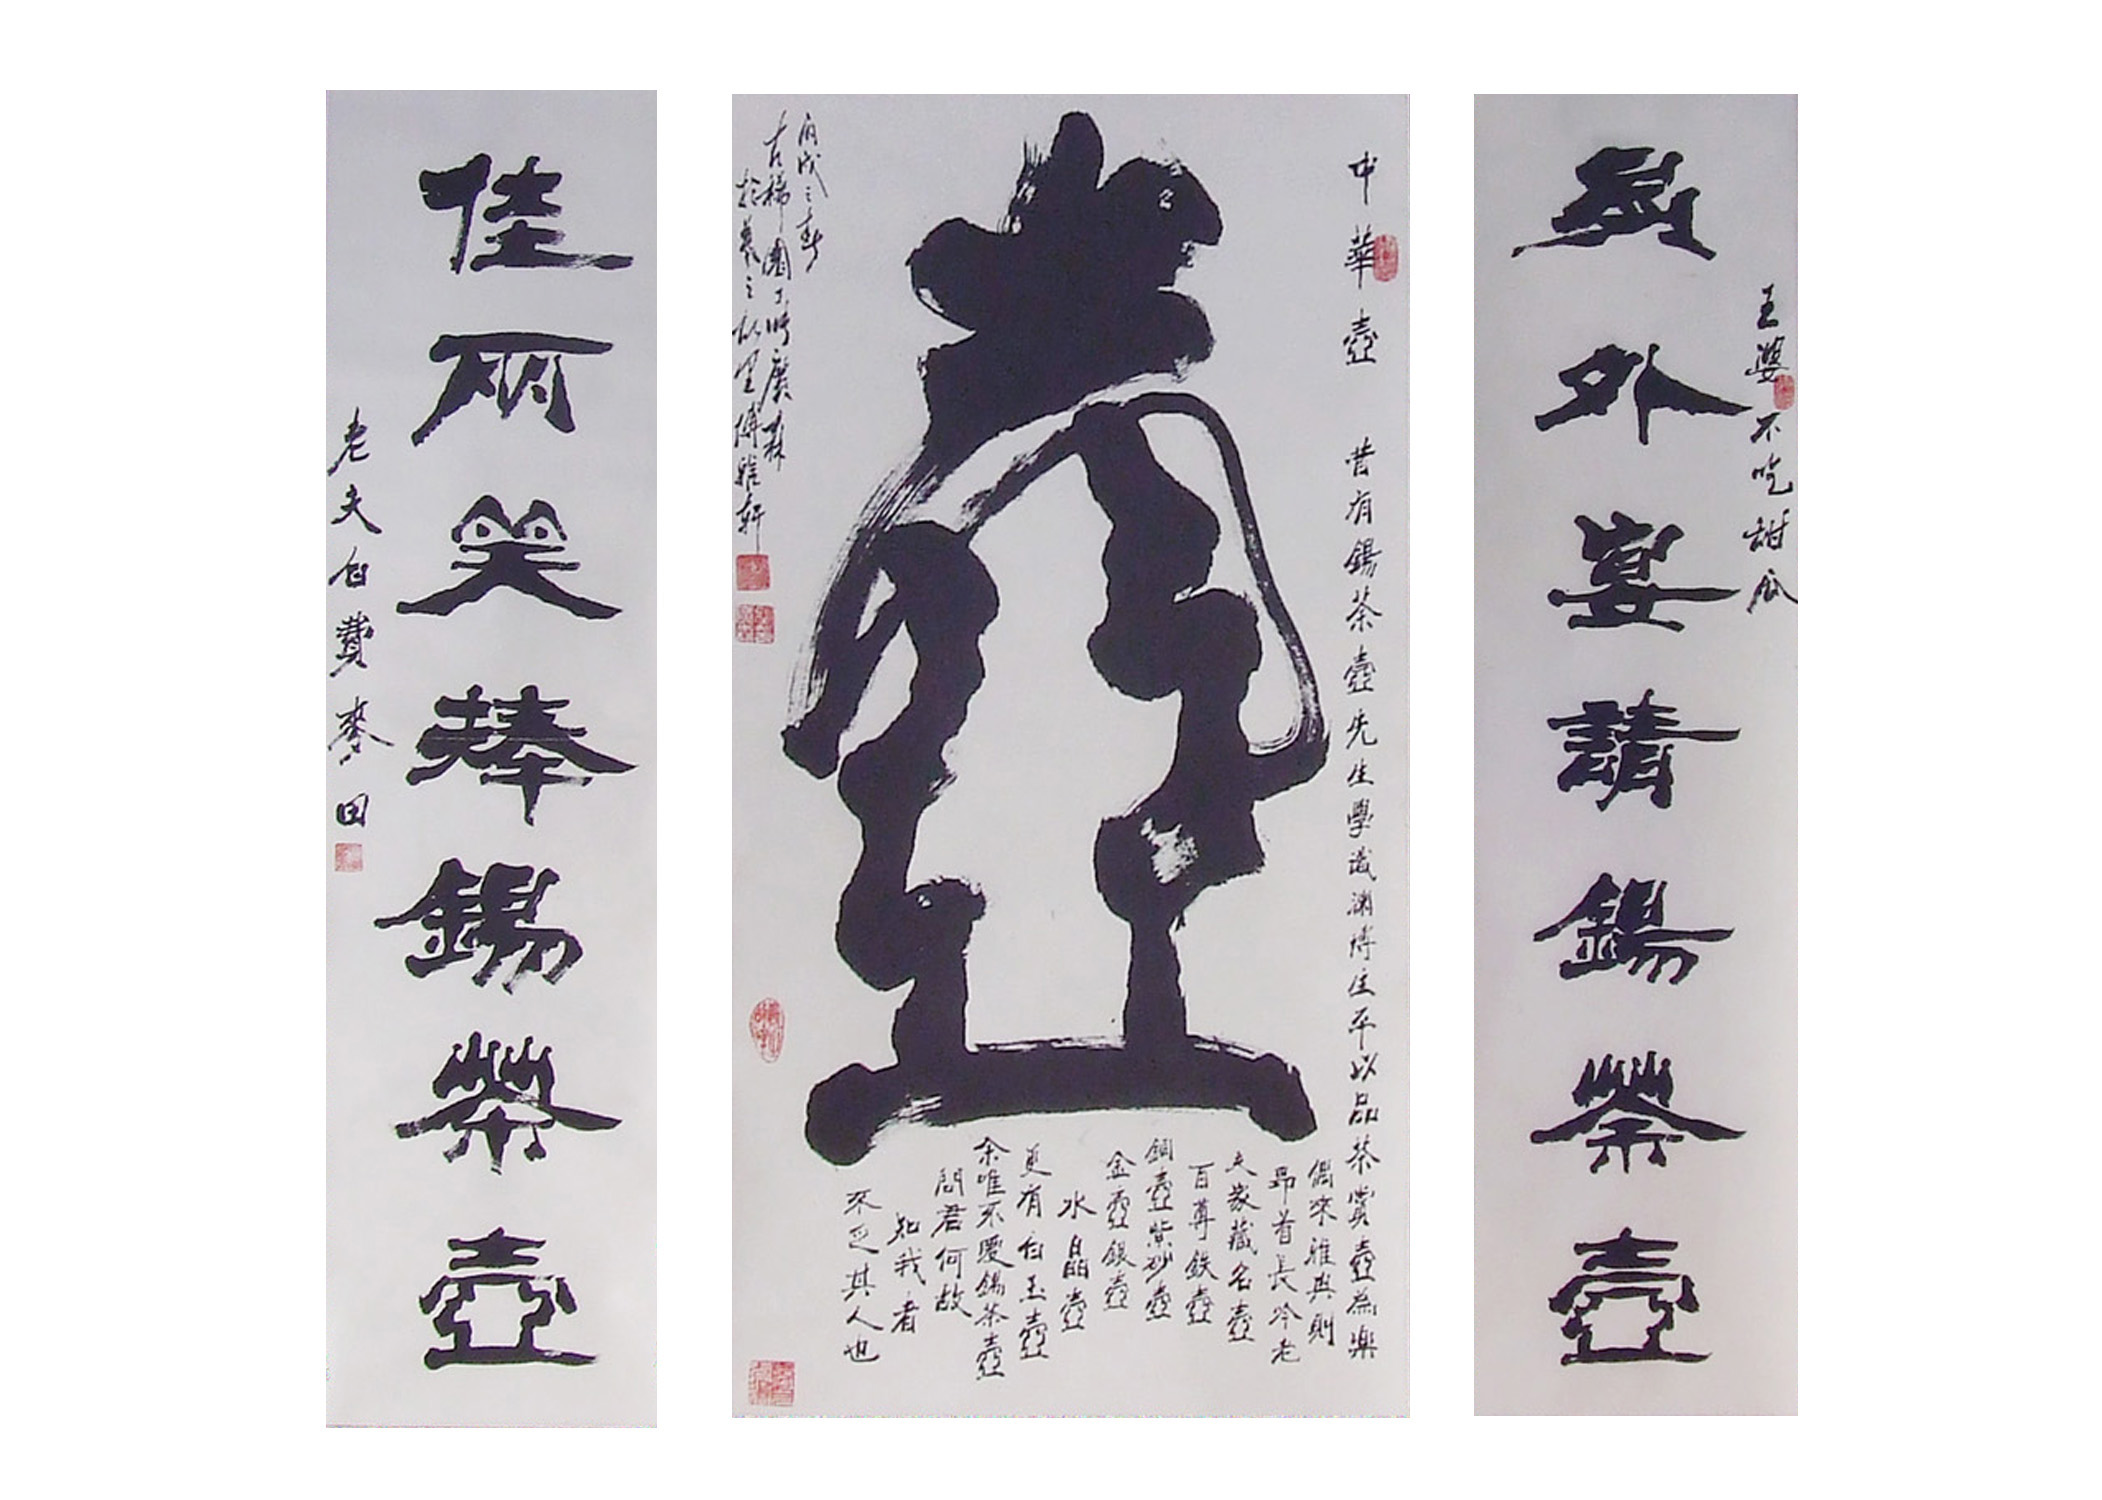 王婆不吃甜瓜
員外宴請錫茶壺
中華壺 昔有錫茶壺先生學識淵博生平以品茶賞壺為樂
偶來雅興則
昂首長吟老
夫家藏名壺
百尊鉄壺
銅壺紫砂壺
金壺銀壺
水晶壺
更有白玉壺
余唯不愛錫茶壺
問君何故
知我者
不乏其人也
壺
丙戌之春
古稀園丁時廣森
於蔡之故里博雅軒
佳丽笑捧錫茶壺
老夫自費麥田